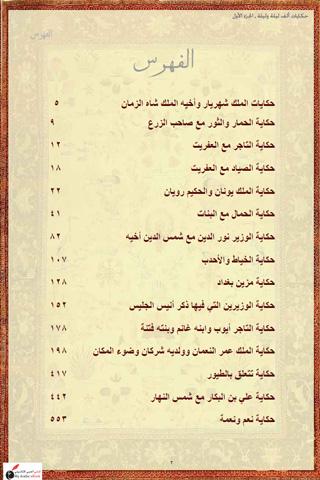 حكايات ألف ليلة وليلة ـ الجزء الأول
الفهرس
الفهرس
حكايات الملك شهريار وأخيه الملك شاه الزمان ٥
حكاية الحمار والثور مع صاحب الزرع ٩
حكاية التاجر مع العفريت ١٢
حكاية الصياد مع العفريت ١٨
حكاية الملك يونان والحكيم رويان ٢٢
حكاية الحمال مع البنات ٤١
حكاية الوزير نور الدين مع شمس الدين أخيه ٨٢
حكاية الخياط والأحدب ١٠٧
حكاية مزين بغداد ١٢٨
حكاية الوزيرين التي فيها ذكر أنيس الجليس ١٥٢
حكاية التاجر أيوب وابنه غانم وبنته فتنة ١٧٨
حكاية الملك عمر النعمان وولديه شركان وضوء المكان ١٩٨
حكاية تتعلق بالطيور ٤١٧
حكاية علي بن البكار مع شمس النهار ٤٤٢
حكاية نعم ونعمة ٥٥٣
٢
My Arabic eBook